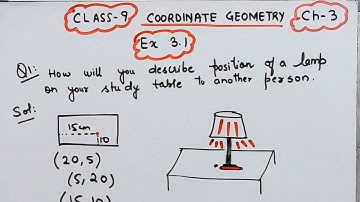 CLASS-9 COORDINATE GEOMETRY Ch-3
Ex 3.1
Q1: How will you describe position of a lamp
on your study table to another person.
Sol:
15cm
10
(20,5)
(5,20)
(15,10)